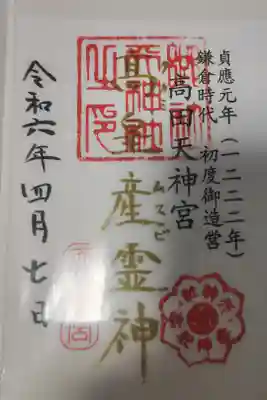 貞應元年(一二二二年)
鎌倉時代 初度御造營
高田天神宮
ムスビ
高皇産霊神
令和六年四月七日